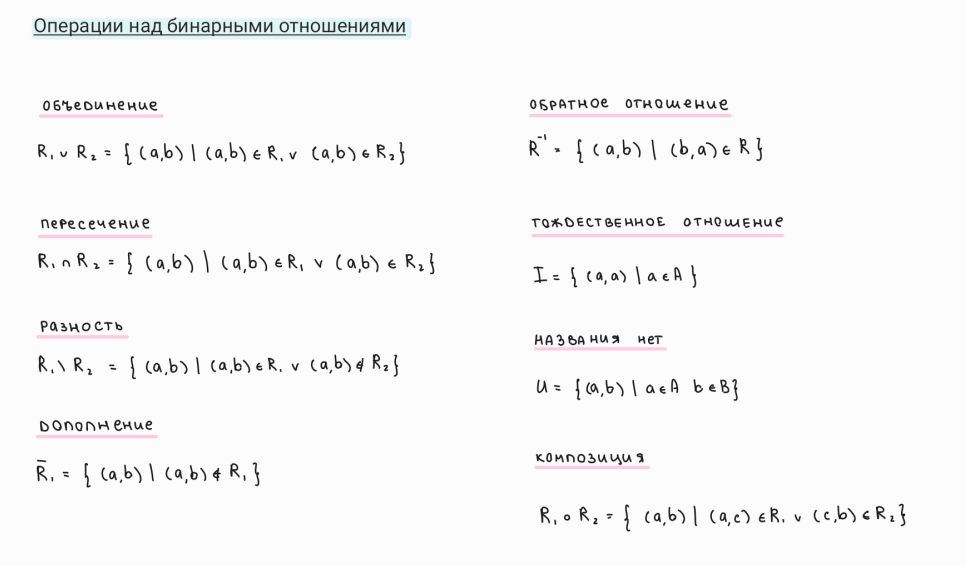 Операции над бинарными отношениями
объединение
R₁ ∪ R₂ = { (a,b) | (a,b) ∈ R₁ ∨ (a,b) ∈ R₂}
пересечение
R₁ ∩ R₂ = { (a,b) | (a,b) ∈ R₁ ∨ (a,b) ∈ R₂}
разность
R₁ \ R₂ = { (a,b) | (a,b) ∈ R₁ ∨ (a,b) ∉ R₂}
дополнение
R̄₁ = { (a,b) | (a,b) ∉ R₁ }
обратное отношение
R⁻¹ = { (a,b) | (b,a) ∈ R }
тождественное отношение
I = { (a,a) | a ∈ A }
названия нет
U = {(a,b) | a ∈ A b ∈ B}
композиция
R₁ ∘ R₂ = { (a,b) | (a,c) ∈ R₁ ∨ (c,b) ∈ R₂}